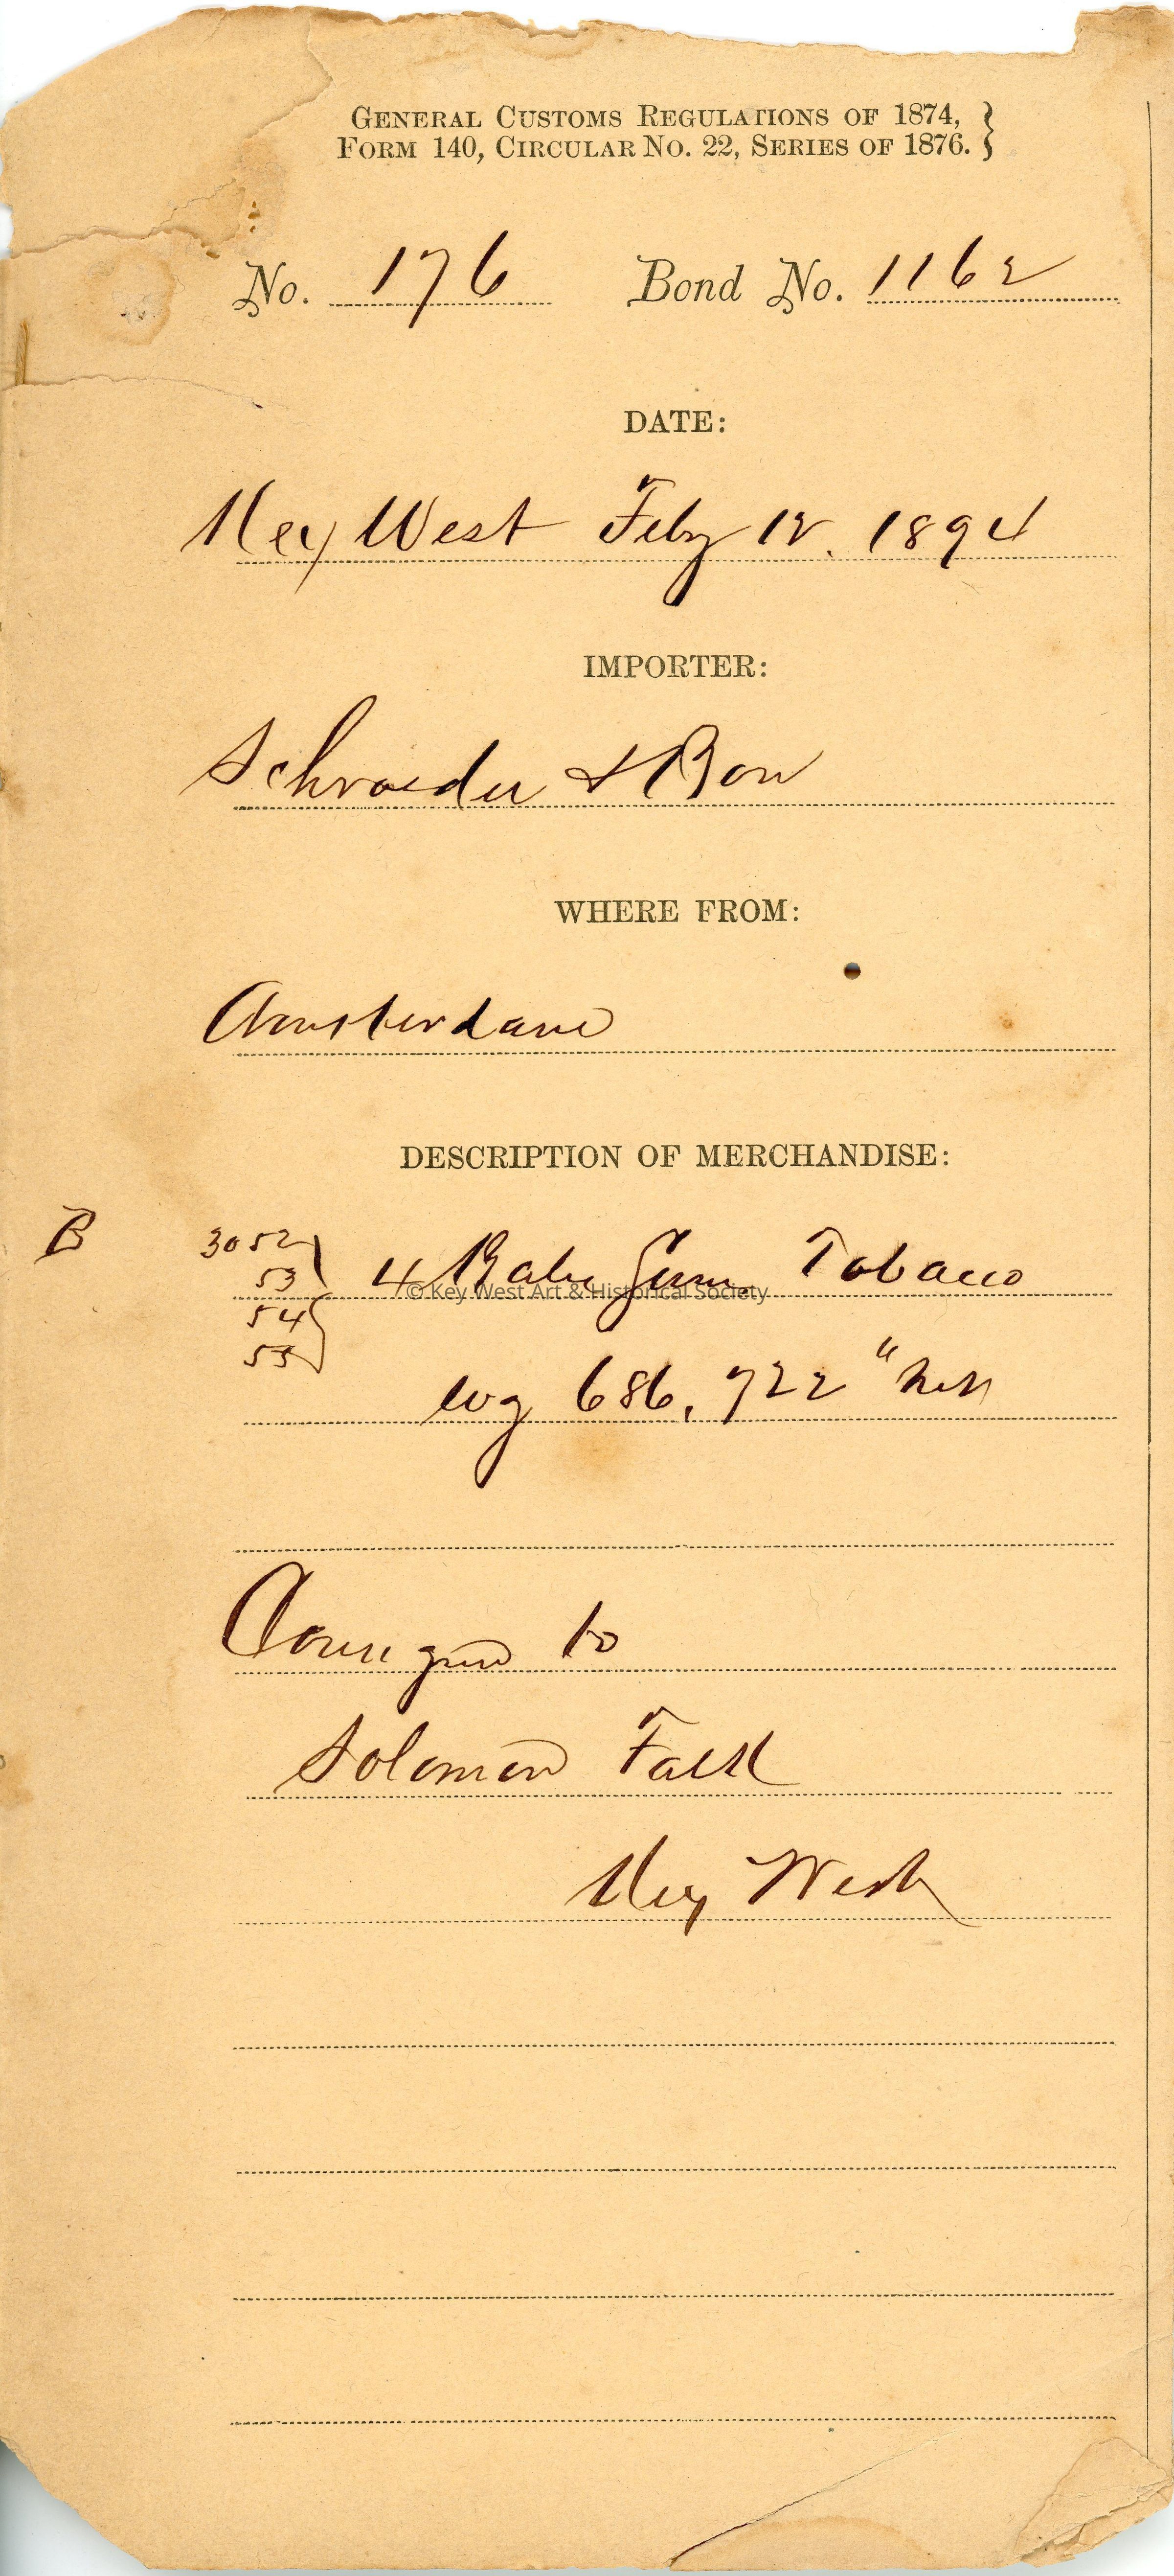 GENERAL CUSTOMS REGULATIONS OF 1874, }
FORM 140, CIRCULAR NO. 22, SERIES OF 1876. }
No. 176 Bond No. 1162
DATE:
Key West Feby 12. 1894
IMPORTER:
Schroeder & Bon
WHERE FROM:
Amsterdam
DESCRIPTION OF MERCHANDISE:
B 3052
53 4 Bales Tobacco
© Key West Art & Historical Society
54
55
wg 686, 722
to
Solomon Falk
Key West